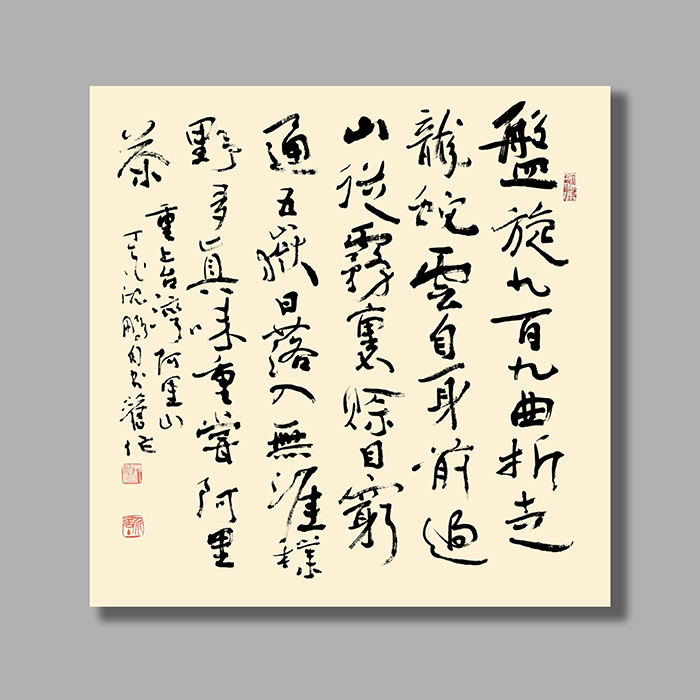 盤旋九百九曲折走
龍蛇雲自身前過
山從霧裏賒目窮
通五嶽日落入無涯樸
野多真味重嘗阿里
茶
重上台灣阿里山
丁亥沈鵬自書舊作